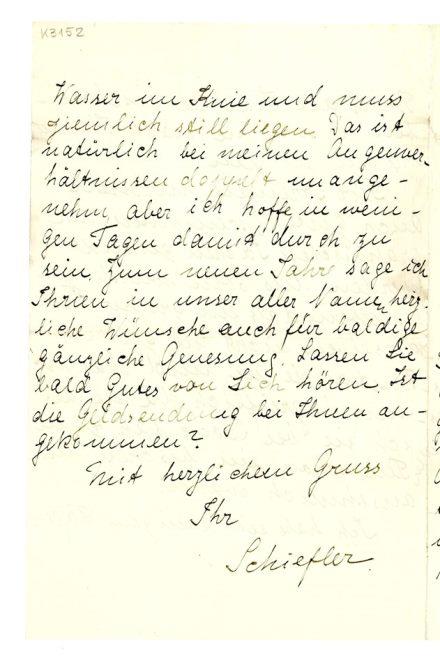 K3152
Wasser im Knie und muss
ziemlich still liegen. Das ist
natürlich bei meinen Augenver-
hältnissen doppelt unange-
nehm, aber ich hoffe, in weni-
gen Tagen damit durch zu
sein. Zum neuen Jahr sage ich
Ihnen in unser aller Namen herz-
liche Wünsche auch für baldige
gänzliche Genesung. Lassen Sie
bald Gutes von Sich hören. Ist
die Geldsendung bei Ihnen an-
gekommen?
Mit herzlichem Gruss
Ihr
Schiefler.